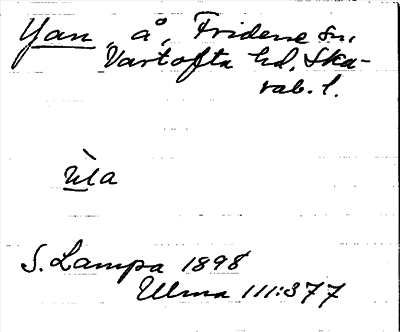 Yan, å, Fridene sn,
Vartofta hd, Ska-
rab. l.
S. Lampa 1898
Ulma 111:377